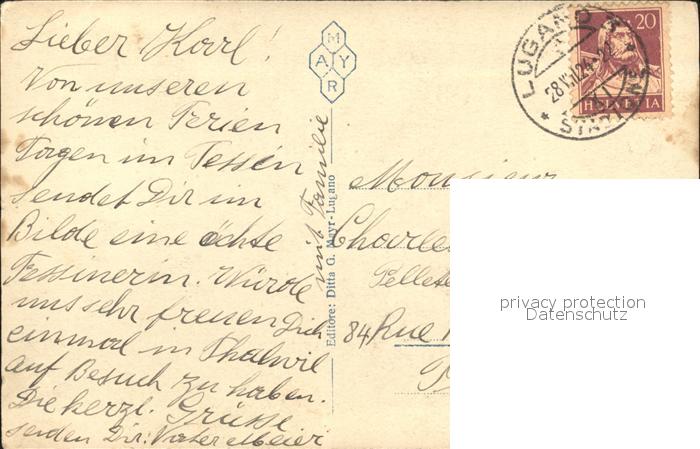 Lieber Karl!
Von unseren
schönen Ferien
Tagen im Tessin
sendet Dir im
Bilde eine ächte
Tessinerin. Würde
uns sehr freuen Dich
einmal in Thalwil
auf Besuch zu haben.
Die herzl. Grüsse
senden Dir: Vater Meier
mit Familie
MAYR
Editore: Ditta G. Mayr-Lugano
LUGANO
28.VII.24
STADT
20
HELVETIA
Monsieur
Charles
84 Rue
privacy protection
Datenschutz